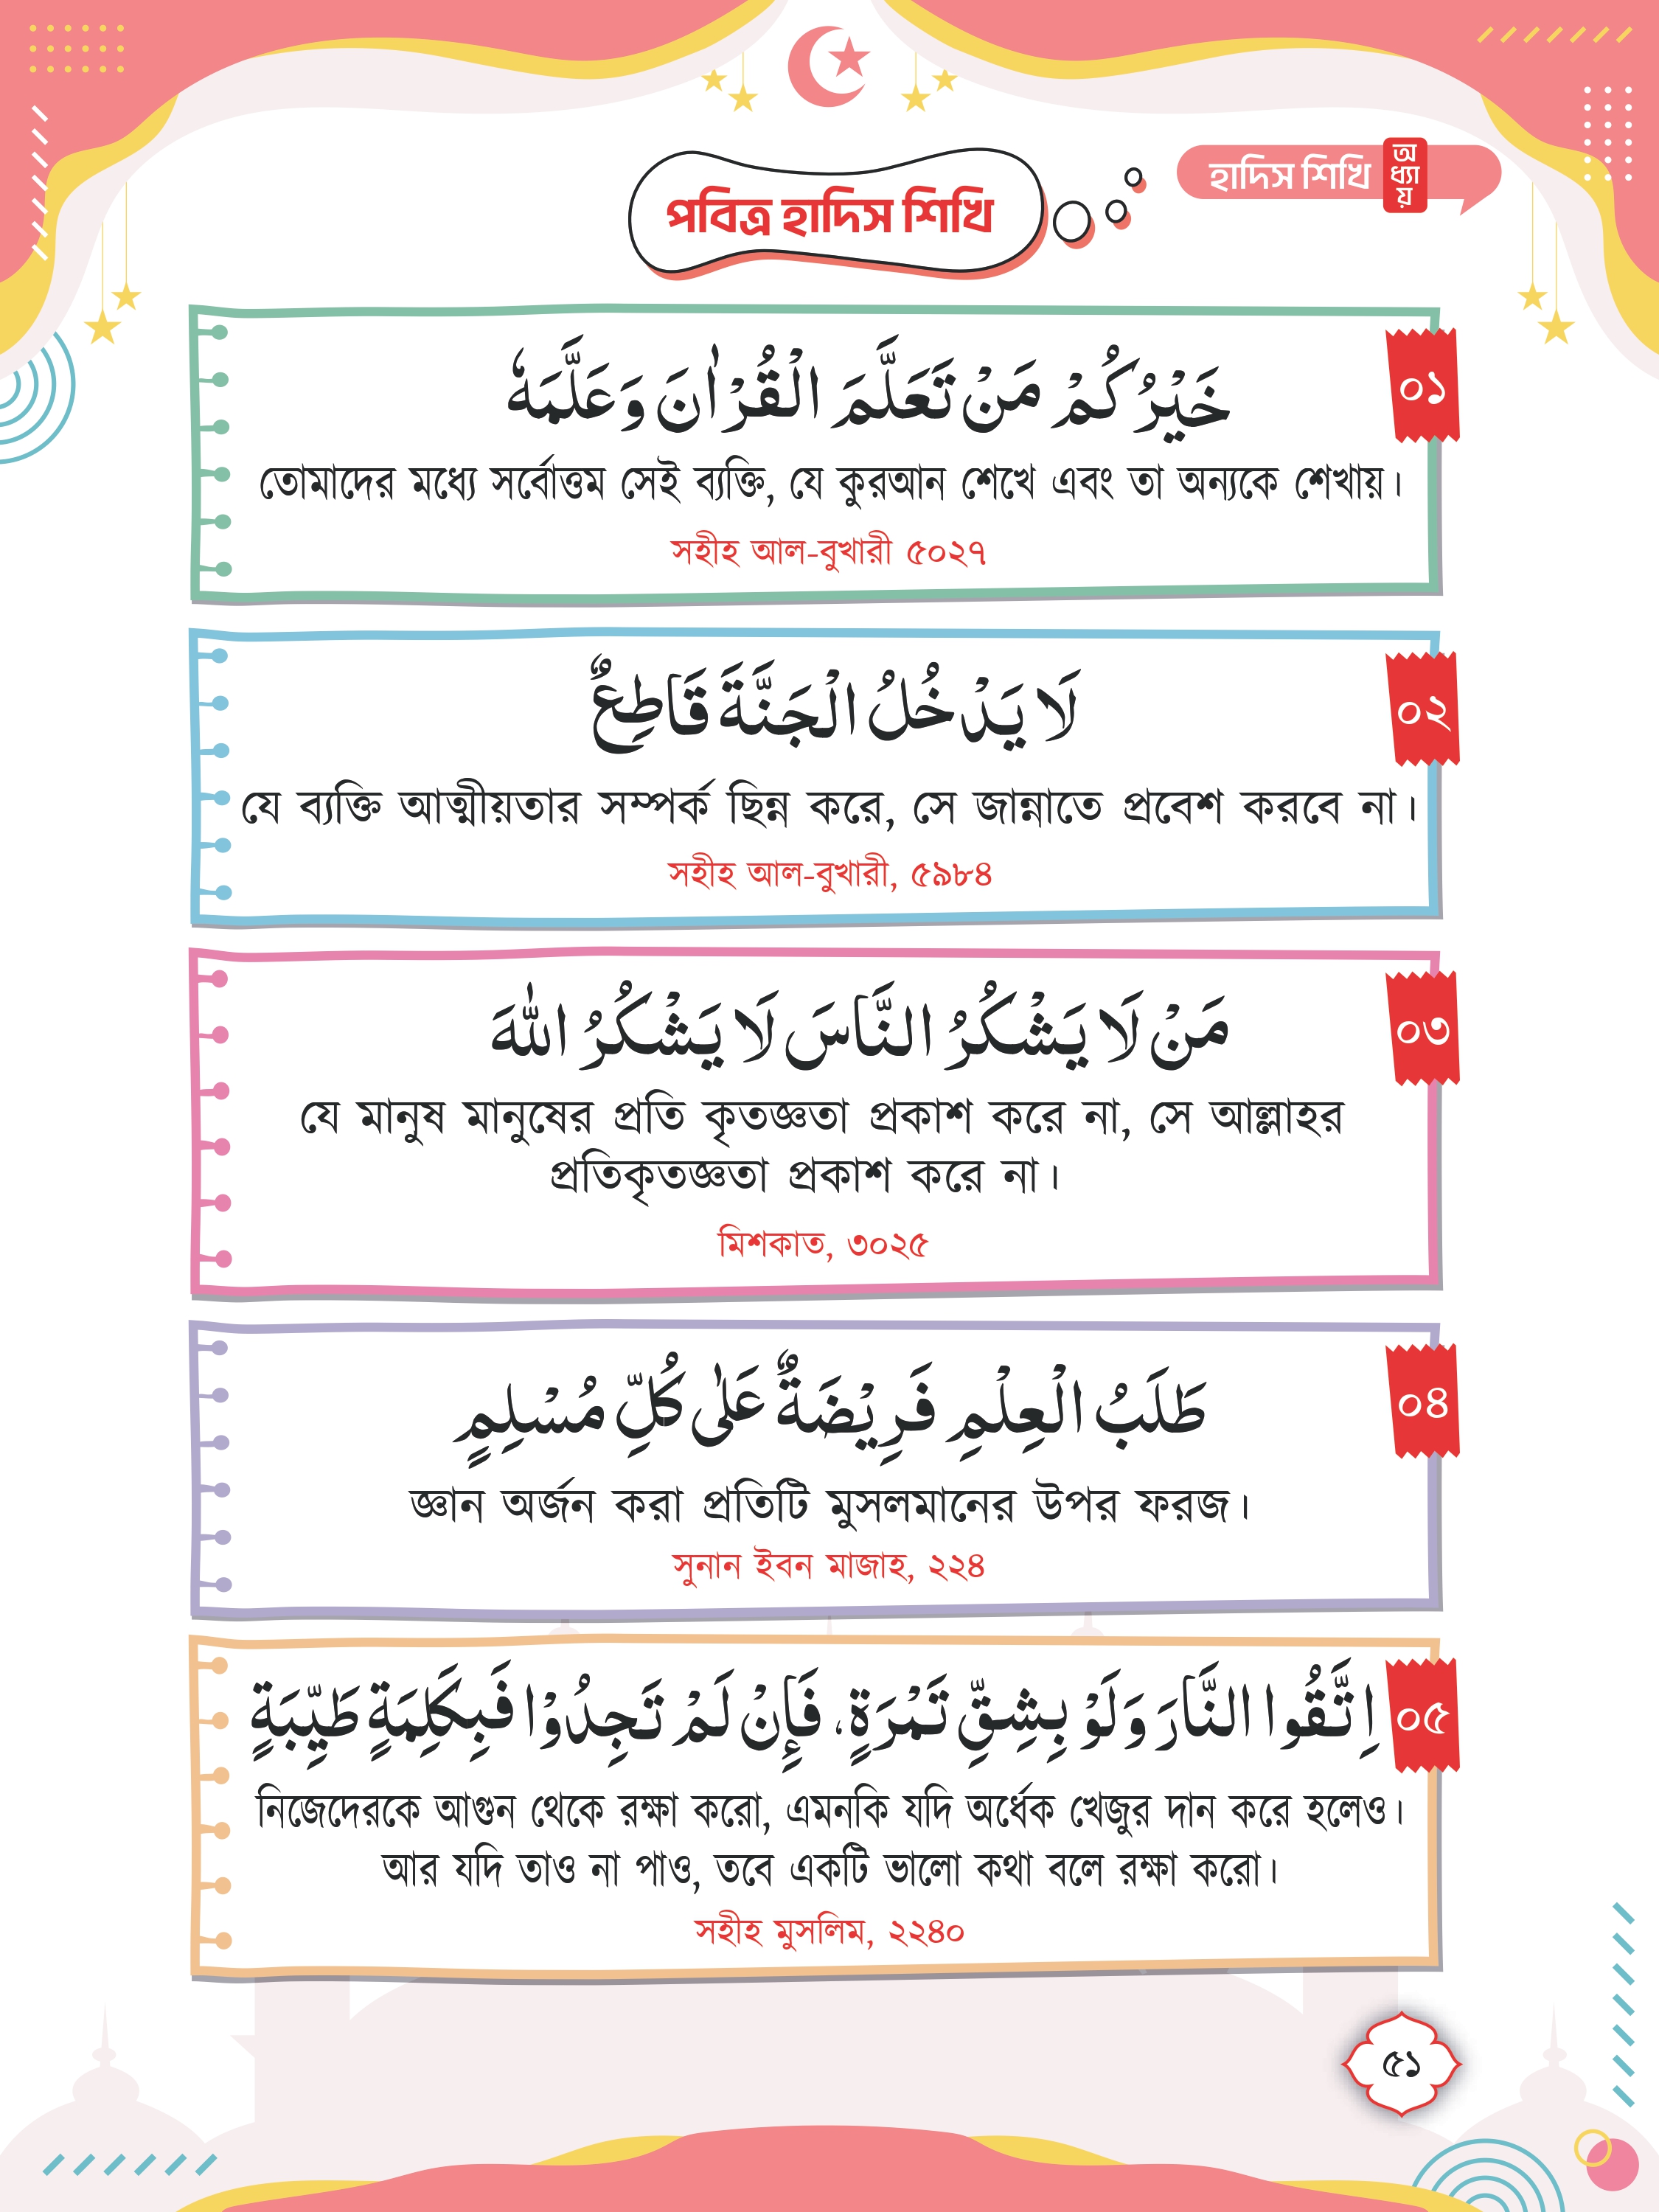 হাদিস শিখি অধ্যায়
পবিত্র হাদিস শিখি
০১
خَيْرُكُمْ مَنْ تَعَلَّمَ الْقُرْاٰنَ وَعَلَّمَهٗ
তোমাদের মধ্যে সর্বোত্তম সেই ব্যক্তি, যে কুরআন শেখে এবং তা অন্যকে শেখায়।
সহীহ আল-বুখারী ৫০২৭
০২
لَا يَدْخُلُ الْجَنَّةَ قَاطِعٌ
যে ব্যক্তি আত্মীয়তার সম্পর্ক ছিন্ন করে, সে জান্নাতে প্রবেশ করবে না।
সহীহ আল-বুখারী, ৫৯৮৪
০৩
مَنْ لَا يَشْكُرُ النَّاسَ لَا يَشْكُرُ اللّٰهَ
যে মানুষ মানুষের প্রতি কৃতজ্ঞতা প্রকাশ করে না, সে আল্লাহর
প্রতিকৃতজ্ঞতা প্রকাশ করে না।
মিশকাত, ৩০২৫
০৪
طَلَبُ الْعِلْمِ فَرِيْضَةٌ عَلٰى كُلِّ مُسْلِمٍ
জ্ঞান অর্জন করা প্রতিটি মুসলমানের উপর ফরজ।
সুনান ইবন মাজাহ, ২২৪
০৫
اِتَّقُوا النَّارَ وَلَوْ بِشِقِّ تَمْرَةٍ، فَإِنْ لَمْ تَجِدُوْا فَبِكَلِمَةٍ طَيِّبَةٍ
নিজেদেরকে আগুন থেকে রক্ষা করো, এমনকি যদি অর্ধেক খেজুর দান করে হলেও।
আর যদি তাও না পাও, তবে একটি ভালো কথা বলে রক্ষা করো।
সহীহ মুসলিম, ২২৪০
৫১